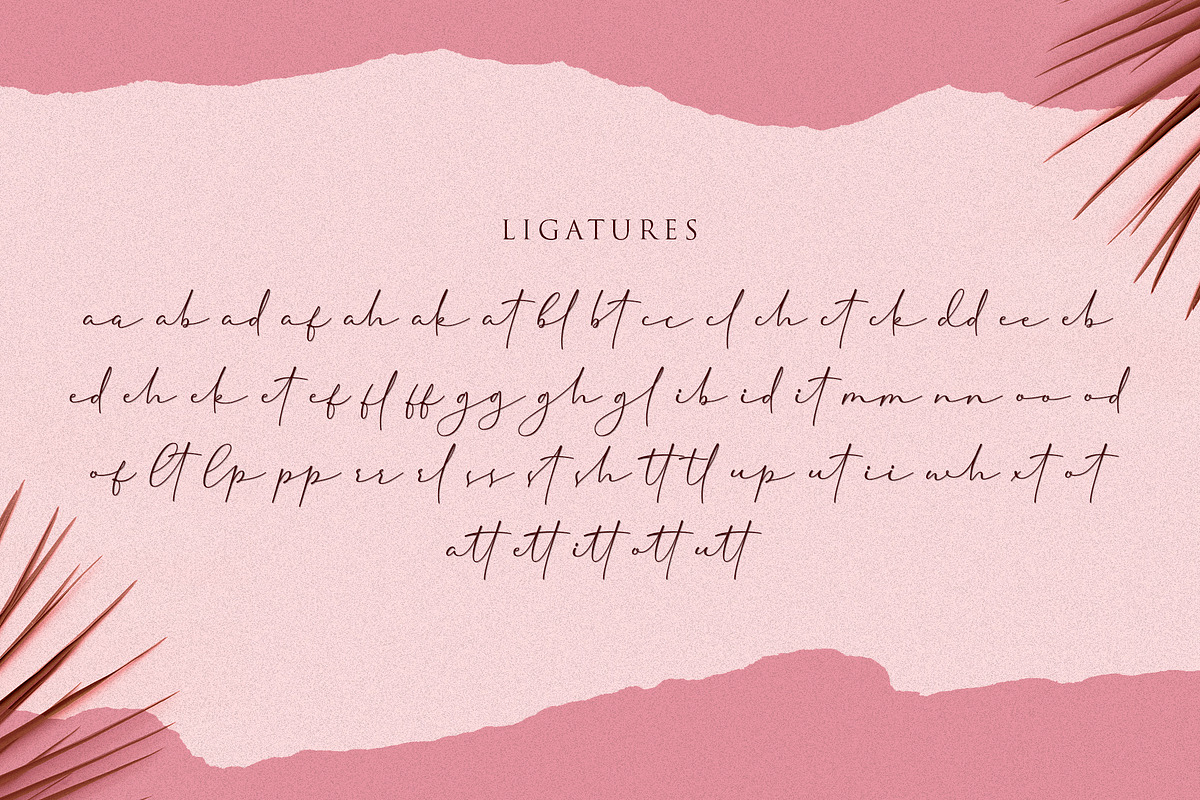 LIGATURES
aa ab ad af ah ak at bl bt cc cl ch ct ck dd ee eb
ed eh ek et ef fl ff gg gh gl ib id it mm nn oo od
of lt lp pp rr rl ss st sh tt tl up ut ii wh xt ot
att ett itt ott utt